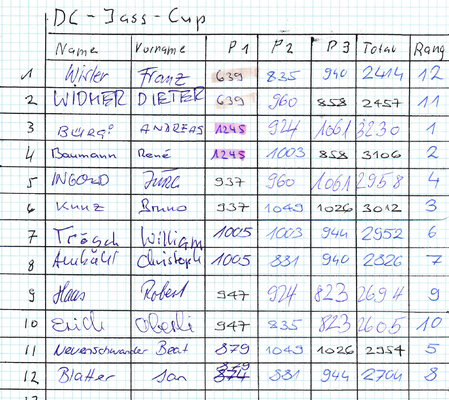 DC-Jass-Cup
Name Vorname P1 P2 P3 Total Rang
1 Winter Franz 639 835 940 2414 12
2 WIDMER DIETER 639 960 858 2457 11
3 BÜRGi ANDREAS 1245 924 1061 3230 1
4 Baumann René 1245 1003 858 3106 2
5 INGOLD Jürg 937 960 1061 2958 4
6 Kunz Bruno 937 1049 1026 3012 3
7 Trösch William 1005 1003 944 2952 6
8 Christoph 1005 881 940 2826 7
9 Haas Robert 947 924 823 2694 9
10 Erich 947 835 823 2605 10
11 Neuenschwander Beat 879 1049 1026 2954 5
12 Blatter Jan 879 881 944 2704 8